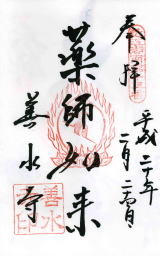 奉拝
平成二十年
二月二十四日
薬師如来
善水寺
善水
寺印